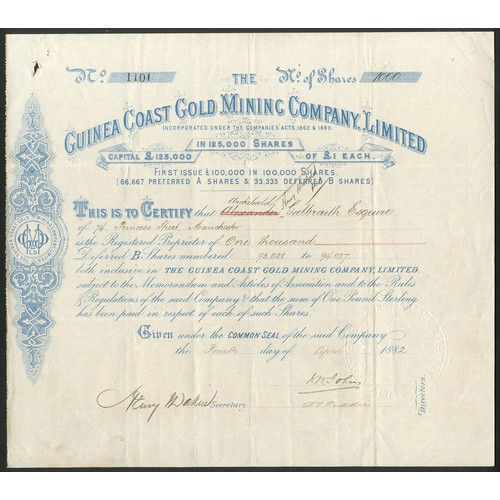 No. 1101 THE No. of Shares 1000
GUINEA COAST GOLD MINING COMPANY, LIMITED
INCORPORATED UNDER THE COMPANIES ACTS, 1862 & 1880.
IN 125,000 SHARES
CAPITAL £125,000 OF £1 EACH.
FIRST ISSUE £100,000 IN 100,000 SHARES.
(66,667 PREFERRED A SHARES & 33,333 DEFERRED B SHARES)
Archibald
THIS IS TO CERTIFY that Alexander Galbraith Esquire
of 74 Princess Street, Manchester
is the Registered Proprietor of One thousand
Deferred B Shares numbered 93,028 to 94,027
both inclusive in THE GUINEA COAST GOLD MINING COMPANY, LIMITED,
subject to the Memorandum and Articles of Association and to the Rules
& Regulations of the said Company & that the sum of One Pound Sterling
has been paid in respect of each of such Shares.
Given under the COMMON SEAL of the said Company
the Fourth day of April 1882
Henry Secretary
Directors.